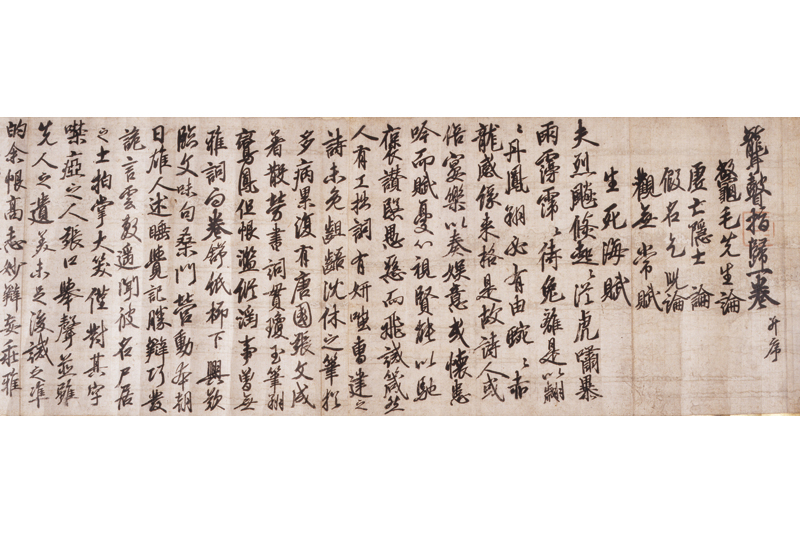 聾瞽指歸一卷 并序
鼈毛先生論
虛亡隱士論
假名乞兒論
觀無常賦
生死海賦
夫烈飈倏起從虎嘯暴
雨霶霈待兔離是以翩
〻丹鳳翔必有由蜿〻赤
龍感緣來格是故詩人或
宴樂以奏娛意或懷患
吟而賦憂心視賢能以馳
褒讚覽愚惡而飛誡箴然
人有工拙詞有妍嗤曹建之
詩未免齟齬沈休之筆猶
多病累復有唐國張文成
著散勞書詞貫瓊玉筆翔
鸞鳳但恨濫縱淫事曾無
雅詞面卷舒紙柳下興歎
臨文味句桑門營動本朝
日雄人述睡覺記勝辯巧發
詭言雲敷遙聞彼名尸居
之士拍掌大笑僅對其字
噤瘂之人張口舉聲並雖
先人之遺美未足後誡之準
的余恨高志妙辯妄乖雅